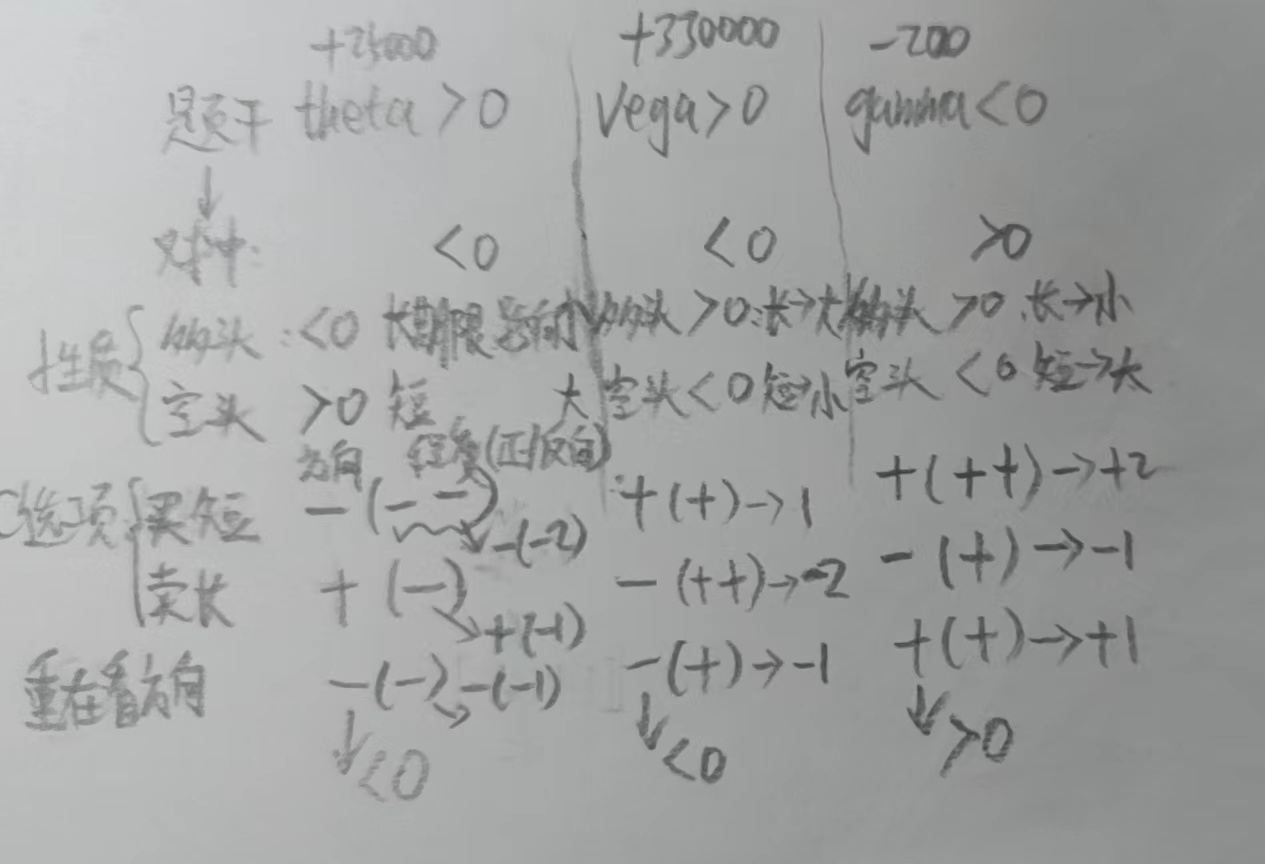 +25000 +330000 -200
题干 theta>0 vega>0 gamma<0
↓
对冲: <0 <0 >0
性质{ 购头:<0 长期限 影响小 购头>0:长→大 购头>0.长→小
空头 >0 短 大 空头<0 短→小 空头<0 短→大
方向 程度(正/反向)
C选项{买短 -(--)→-(-2) +(+)→1 +(++)→+2
卖长 +(-)→+(-1) -(++)→-2 -(+)→-1
重在看方向 -(-)→-(-1) -(+)→-1 +(+)→+1
↓<0 ↓<0 ↓>0